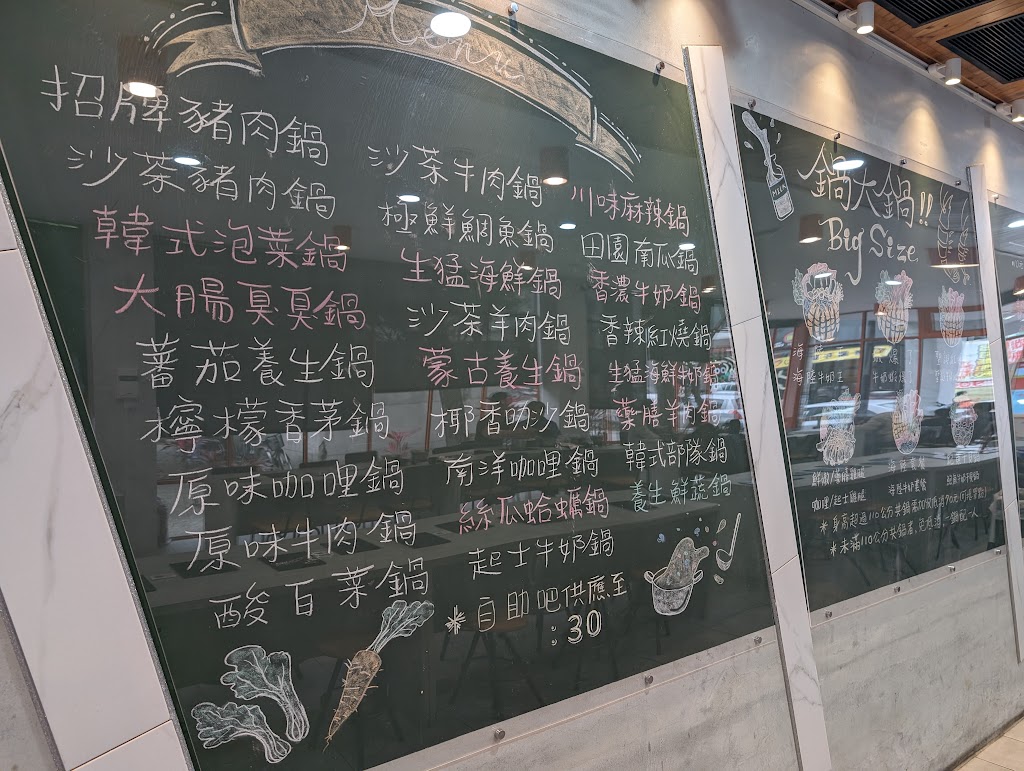 Menu
招牌豬肉鍋
沙茶豬肉鍋
韓式泡菜鍋
大腸臭臭鍋
蕃茄養生鍋
檸檬香茅鍋
原味咖哩鍋
原味牛肉鍋
酸白菜鍋
沙茶牛肉鍋
極鮮鯛魚鍋
生猛海鮮鍋
沙茶羊肉鍋
蒙古養生鍋
椰香叻沙鍋
南洋咖哩鍋
絲瓜蛤蠣鍋
起士牛奶鍋
*自助吧供應至
:30
川味麻辣鍋
田園南瓜鍋
香濃牛奶鍋
香辣紅燒鍋
生猛海鮮牛奶鍋
藥膳羊肉鍋
韓式部隊鍋
養生鮮蔬鍋
MILK
鍋大鍋!!
Big Size
海陸牛奶
咖哩/起士雞腿
*身高超過110公分共鍋
*未滿110公分共鍋者